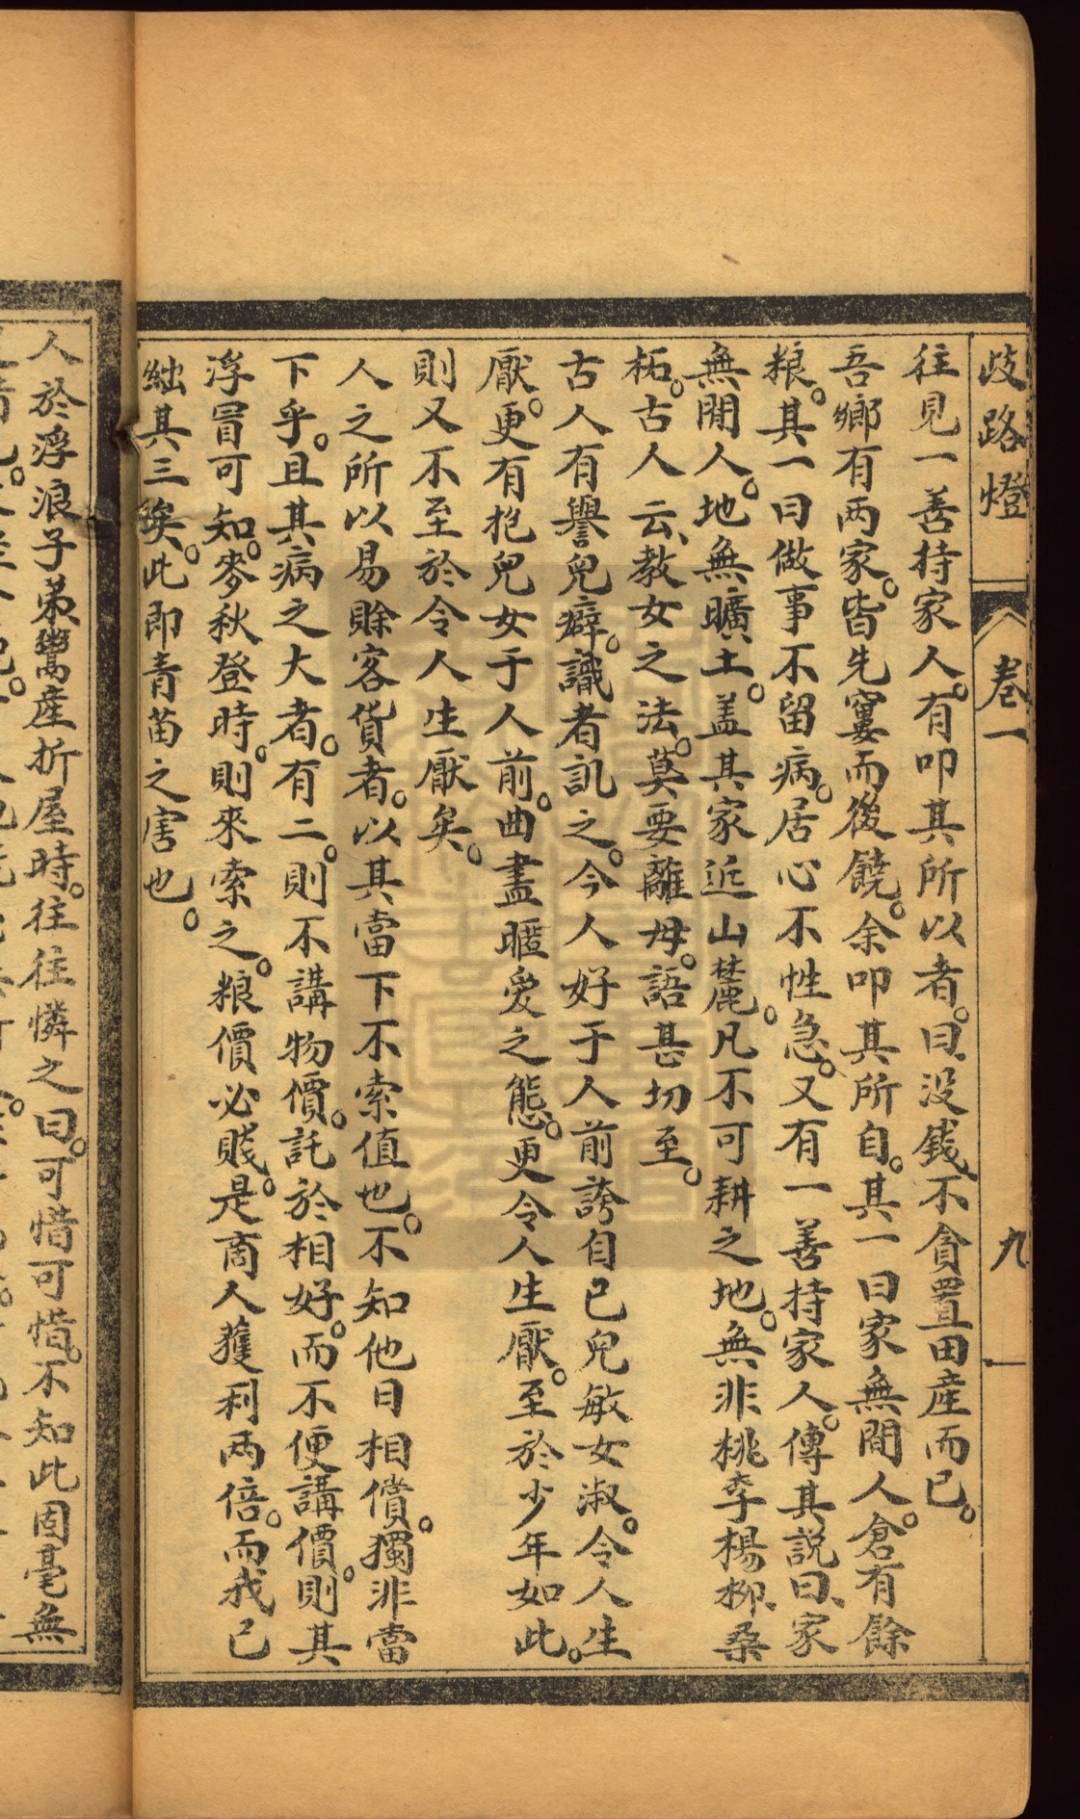 歧路燈
卷一
九
往見一善持家人。有叩其所以者。曰、没錢不貪置田産而已。
吾鄉有两家。皆先窶而後饒。余叩其所自。其一曰家無閒人。倉有餘
粮。其一曰做事不留病。居心不性急。又有一善持家人。傳其說曰、家
無閒人。地無曠土。盖其家近山麓。凡不可耕之地。無非桃李楊柳、桑
柘。古人云、教女之法。莫要離母。語甚切至。
古人有譽兒癖。識者訊之。今人好于人前誇自己兒敏女淑。令人生
厭。更有抱兒女于人前。曲盡暱愛之態。更令人生厭。至於少年如此。
則又不至於令人生厭矣。
人之所以易賒客貨者。以其當下不索值也。不知他日相償。獨非當
下乎。且其病之大者。有二。則不講物價。託於相好。而不便講價。則其
浮冒可知。麥秋登時。則來索之。粮價必賤。是商人獲利两倍。而我已
絀其三矣。此即青苗之害也。
人於浮浪子弟鬻産折屋時。往往憐之曰。可惜可惜。不知此固毫無